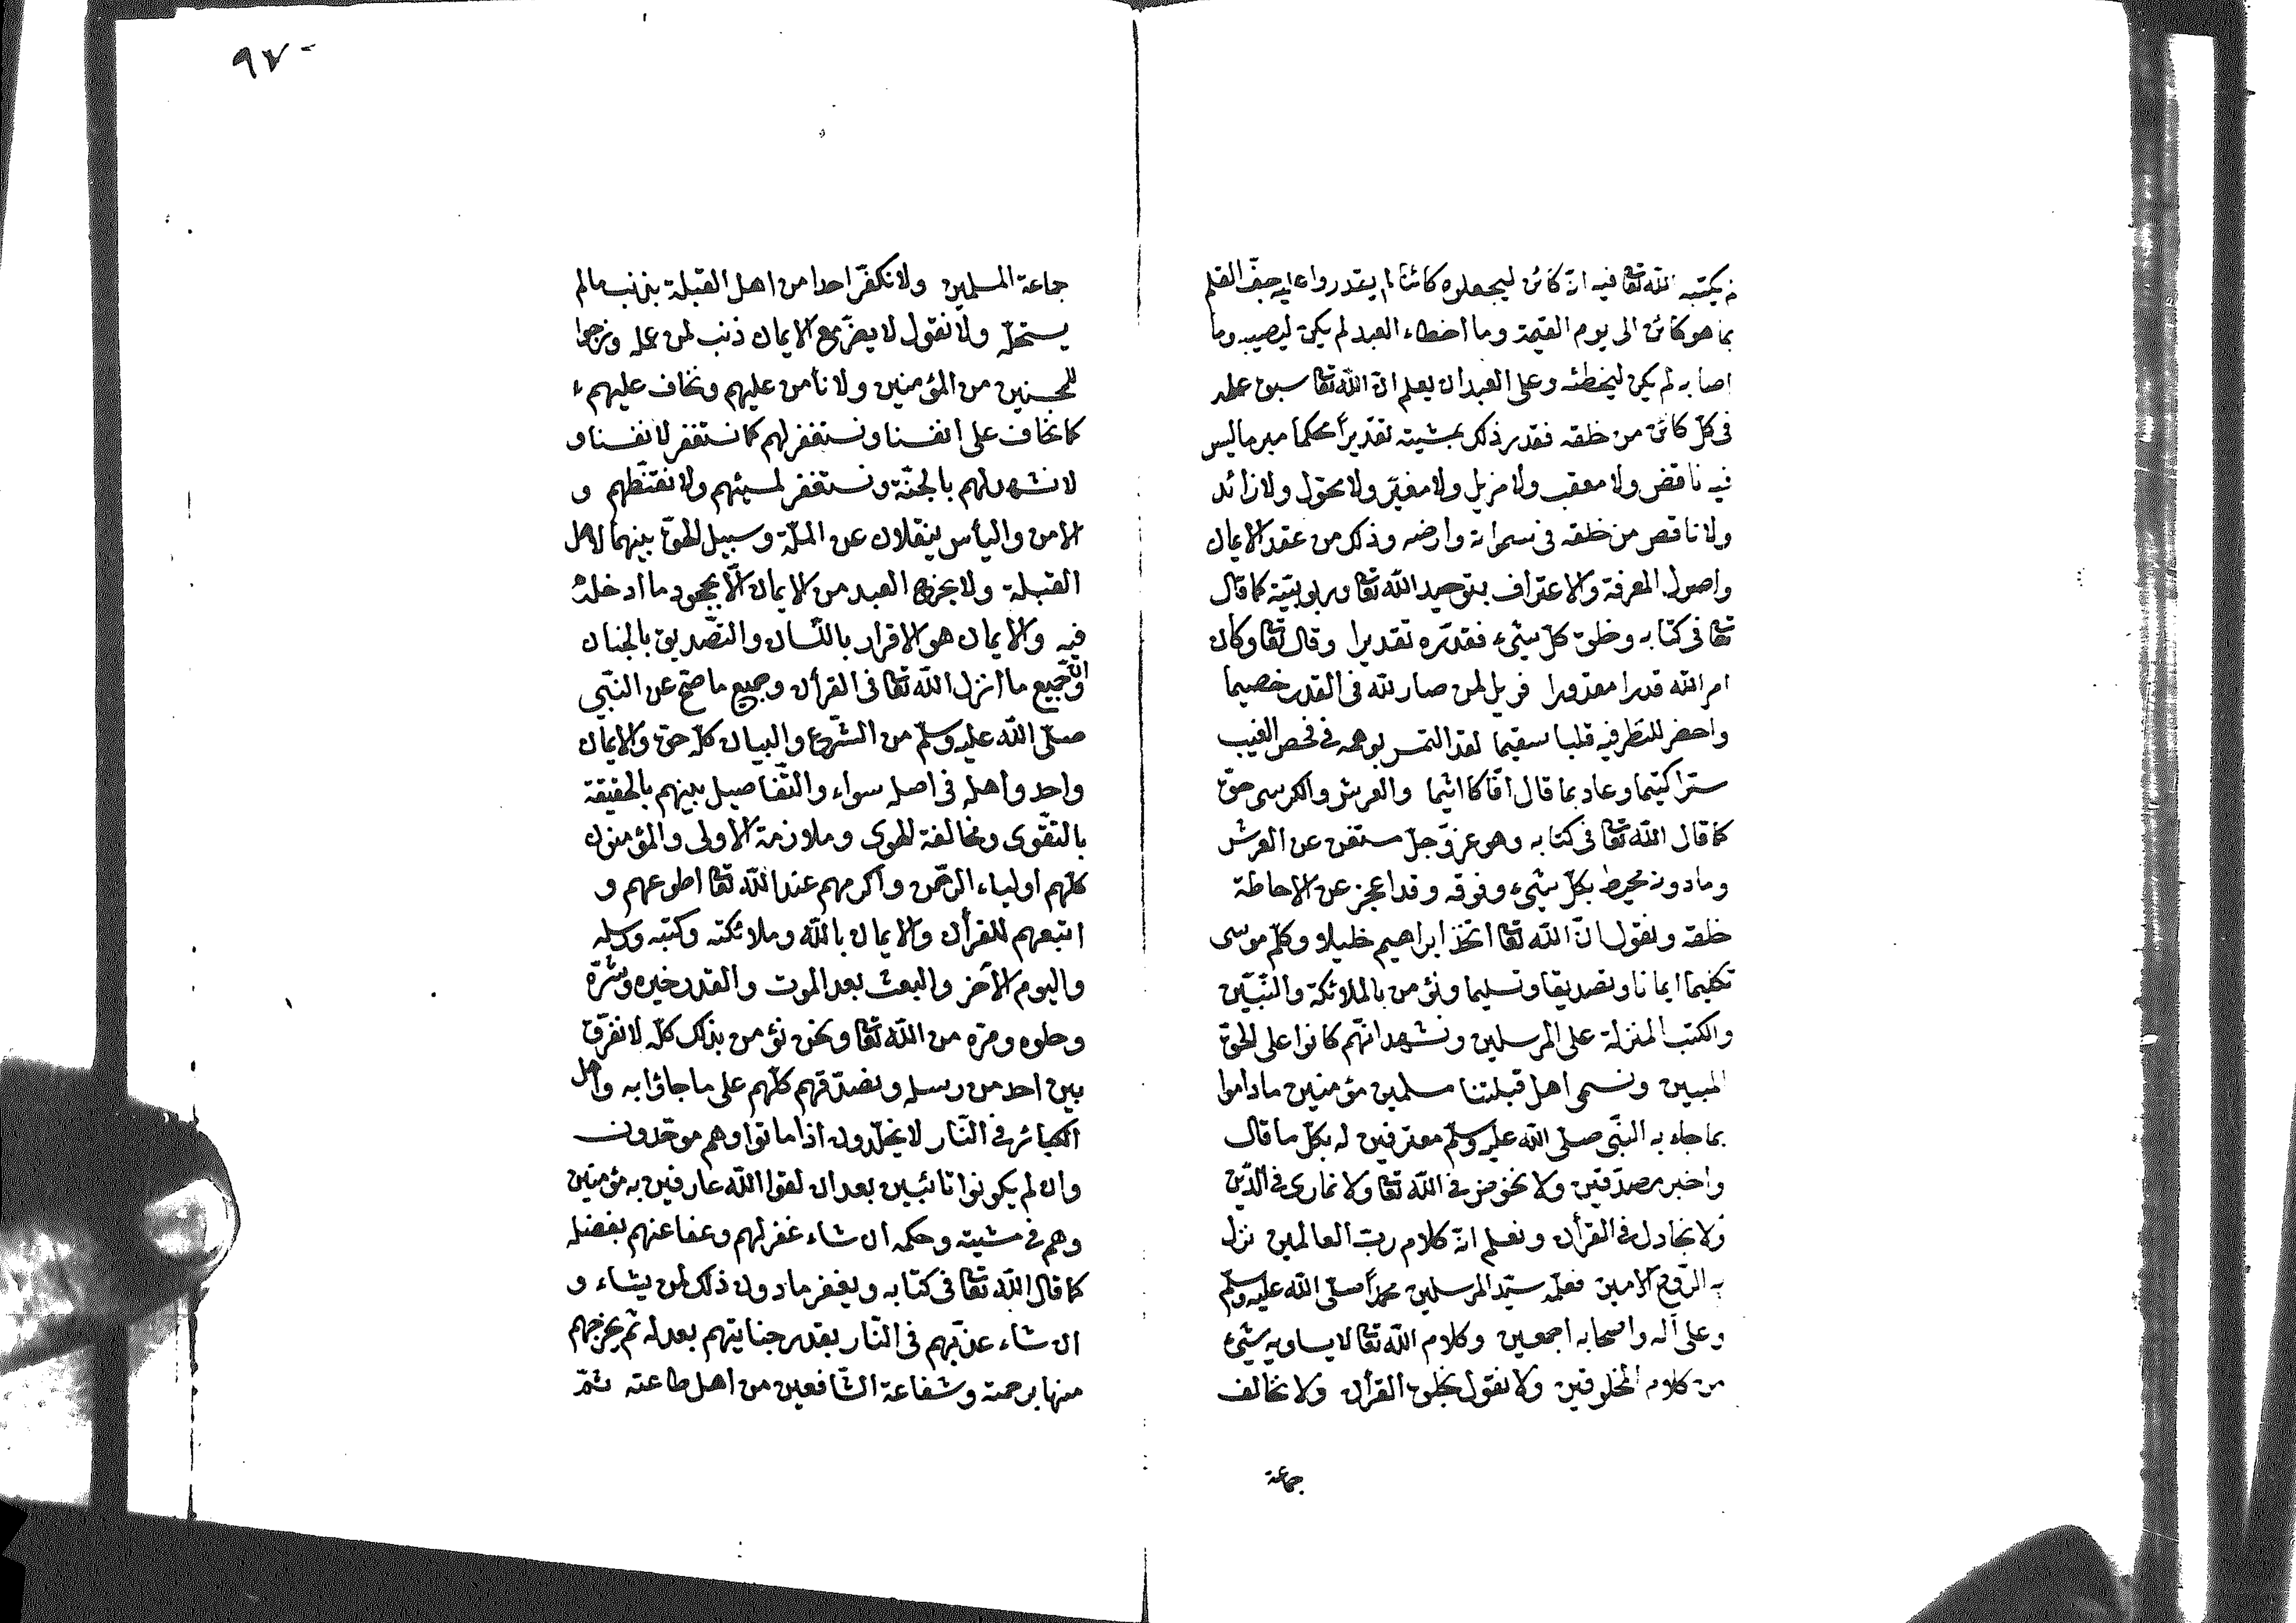 لم يكتبه الله تعا فيه انه كائن ليجعلوه كائنا لم يقدروا عليه جف القلم
بما هو كائن الى يوم القيمة وما اخطاء العبد لم يكن ليصيبه وما
اصابه لم يكن ليخطئه وعلى العبد ان يعلم انّ الله تعا سبق علمه
فى كلّ كائن من خلقه فقدر ذلك بمشيته تقديراً محكما مبرما ليس
فيه ناقض ولا معقب ولا مزيل ولا مغيّر ولا محوّل ولا زائد
ولا ناقص من خلقه فى سمواته وارضه وذلك من عقد الايمان
واصول المعرفة والاعتراف بتوحيد الله تعا وربوبيّته كما قال
تعا فى كتابه وخلق كلّ شئ فقدّره تقديرا وقال تعا وكان
امر الله قدرا مقدورا فويل لمن صار لله فى القدر خصيما
واحضر للنظر فيه قلبا سقيما لقد التمس بوهمه فى فحص الغيب
سترا كتيما وعاد بما قال افّاكا اثيما والعرش والكرسى حقّ
كما قال الله تعا فى كتابه وهو عزّ وجلّ مستغن عن العرش
وما دونه محيط بكلّ شئ وفوقه وقد اعجز عن الاحاطة
خلقه ونقول انّ الله تعا اتخذ ابراهيم خليلا وكلّم موسى
تكليما ايمانا وتصديقا وتسليما ونؤمن بالملائكة والنّبيّين
والكتب المنزلة على المرسلين ونشهد انّهم كانوا على الحقّ
المبين ونسمى اهل قبلتنا مسلمين مؤمنين ماداموا
بما جاء به النّبى صلى الله عليه وسلّم معترفين له بكلّ ما قال
واخبر مصدّقين ولا نخوض فى الله تعا ولا نمارى فى الدّين
ولا نجادل فى القرأن ونعلم انّه كلام ربّ العالمين نزل
به الرّوح الامين فعلّمه سيّد المرسلين محمداً صلّى الله عليه وسلّم
وعلى آله واصحابه اجمعين وكلام الله تعا لا يساويه شئ
من كلام المخلوقين ولا نقول بخلق القرأن ولا نخالف
جماعة
٩٧
جماعة المسلمين ولا نكفّر احدا من اهل القبلة بذنب مالم
يستحلّه ولا نقول لا يضرّ مع الايمان ذنب لمن عمله ونرجوا
للمحسنين من المؤمنين ولا نأمن عليهم ونخاف عليهم
كما نخاف على انفسنا ونستغفر لهم كما نستغفر لانفسنا و
لا نشهد لهم بالجنّة ونستغفر لمسيئهم ولا نقنّطهم و
الامن والياس ينقلان عن الملّة وسبيل الحقّ بينهما لاهل
القبلة ولا يخرج العبد من الايمان الّا بجحود ما ادخله
فيه والايمان هو الاقرار باللّسان والتّصديق بالجنان
وانّ جميع ما انزل الله تعا فى القرأن وجميع ما صحّ عن النّبى
صلّى الله عليه وسلّم من الشّرع والبيان كلّه حقّ والايمان
واحد واهله فى اصله سواء والتّفاصيل بينهم بالحقيقة
بالتّقوى ومخالفة الهوى وملازمة الاولى والمؤمنون
كلّهم اولياء الرّحمن واكرمهم عند الله تعا اطوعهم و
اتبعهم للقرأن والايمان بالله وملائكته وكتبه ورسله
واليوم الآخر والبعث بعد الموت والقدر خيره وشرّه
وحلوه ومرّه من الله تعا ونحن نؤمن بذلك كلّه لا نفرّق
بين احد من رسله ونصدّقهم كلّهم على ما جاؤا به واهل
الكبائر فى النّار لا يخلّدون اذا ماتوا وهم موحّدون
وان لم يكونوا تائبين بعد ان لقوا الله عارفين به مؤمنين
وهم فى مشيته وحكمه ان شاء غفر لهم وعفا عنهم بفضله
كما قال الله تعا فى كتابه ويغفر ما دون ذلك لمن يشاء و
ان شاء عذّبهم فى النّار بقدر جنايتهم بعدله ثم يخرجهم
منها برحمته وشفاعة الشّافعين من اهل طاعته ثمّ